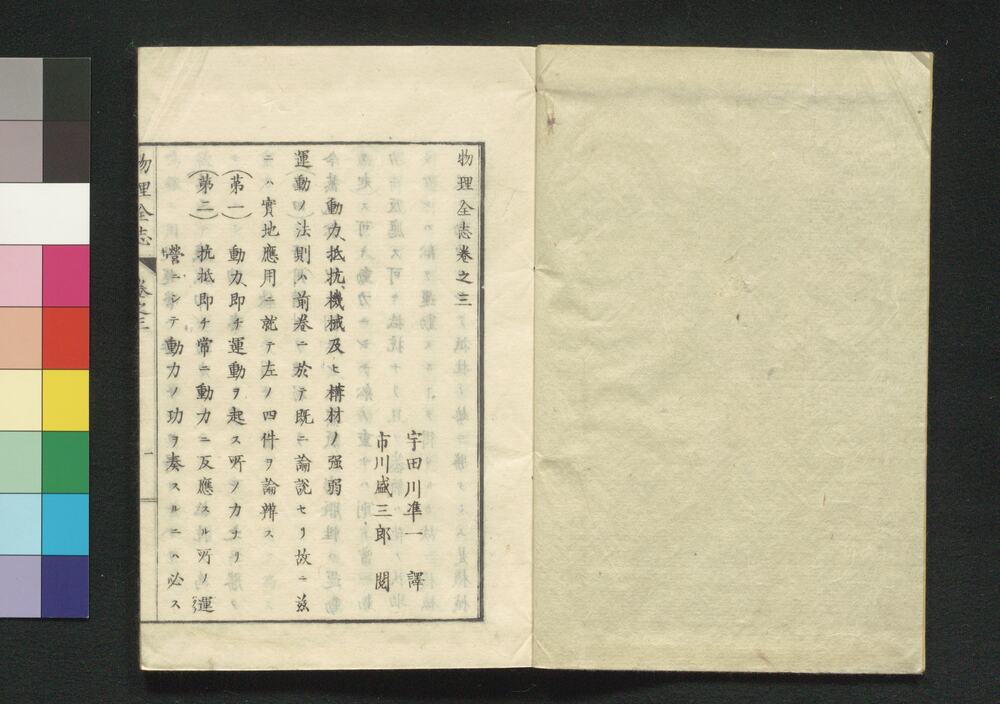 物理全志卷之三
宇田川準一　譯
市川盛三郎　閲
動力、抵抗、機械及ヒ構材ノ强弱
運動ノ法則ハ前卷ニ於テ既ニ論説セリ故ニ茲
ニハ實地應用ニ就テ左ノ四件ヲ論辨ス
（第一）動力、即チ運動ヲ起ス所ノ力ナリ
（第二）抗抵、即チ常ニ動力ニ反應スル所ノ運
營ニシテ動力ノ功ヲ奏スルニハ必ス
物理全志　卷之三　一